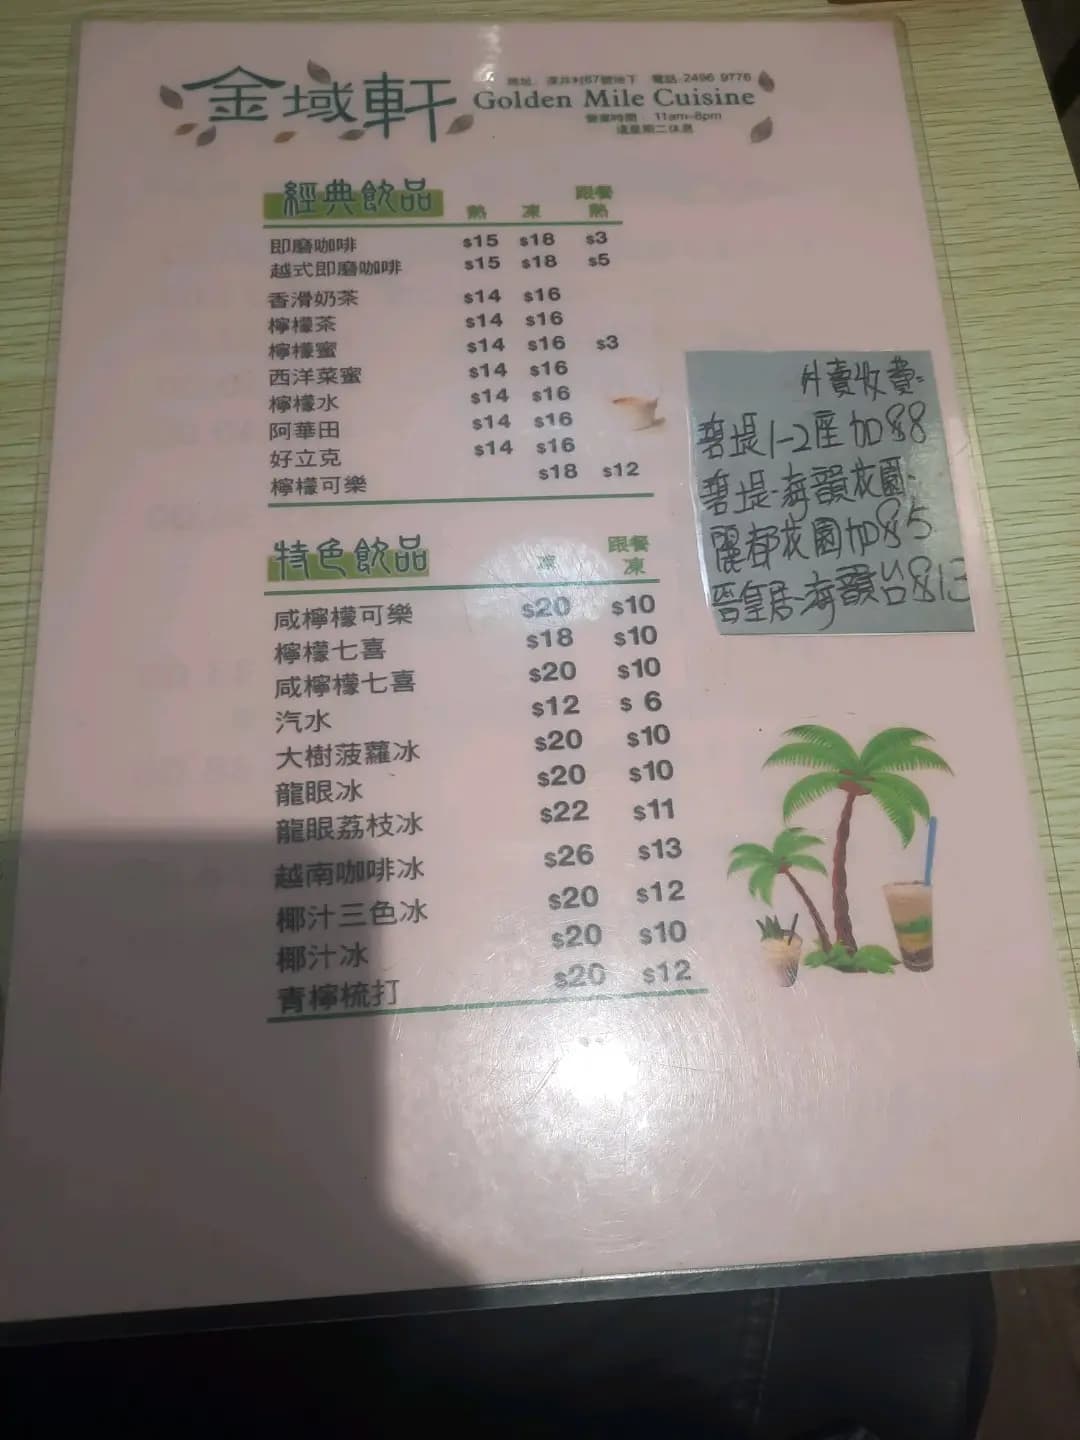 金域軒
地址：深井村67號地下 電話：2496 9776
Golden Mile Cuisine
營業時間： 11am-8pm
逢星期二休息
經典飲品 熱 凍 跟餐 熱
即磨咖啡 $15 $18 $3
越式即磨咖啡 $15 $18 $5
香滑奶茶 $14 $16
檸檬茶 $14 $16
檸檬蜜 $14 $16 $3
西洋菜蜜 $14 $16
檸檬水 $14 $16
阿華田 $14 $16
好立克 $14 $16
檸檬可樂 $18 $12
特色飲品 凍 跟餐 凍
咸檸檬可樂 $20 $10
檸檬七喜 $18 $10
咸檸檬七喜 $20 $10
汽水 $12 $ 6
大樹菠蘿冰 $20 $10
龍眼冰 $20 $10
龍眼荔枝冰 $22 $11
越南咖啡冰 $26 $13
椰汁三色冰 $20 $12
椰汁冰 $20 $10
青檸梳打 $20 $12
外賣收費：
碧堤1-2座加$8
碧堤·海韻花園·
麗都花園加$5
晉皇居·海韻台$13